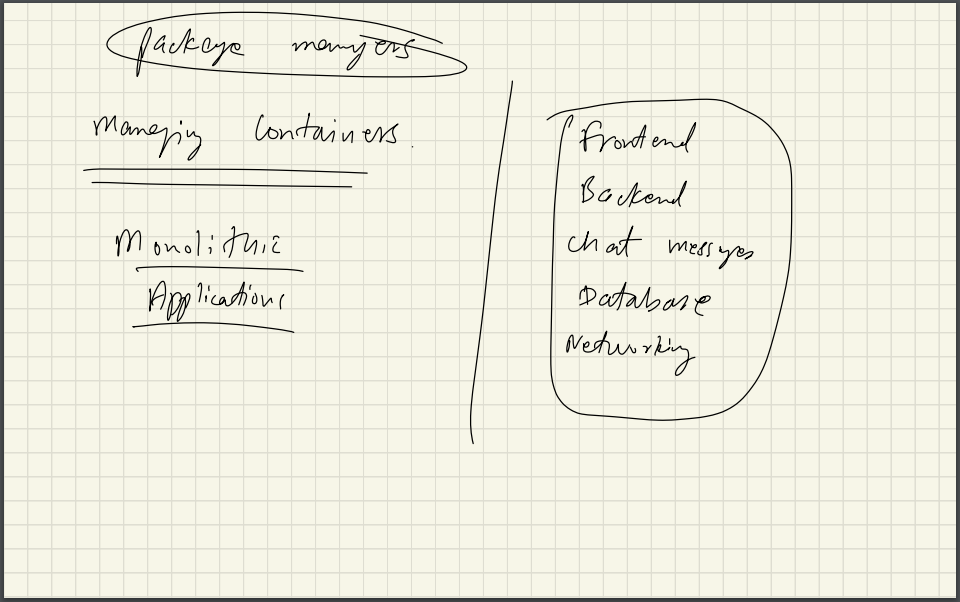 package managers
Managing Containers.
Monolithic
Applications
Frontend
Backend
Chat messages
Database
Networking